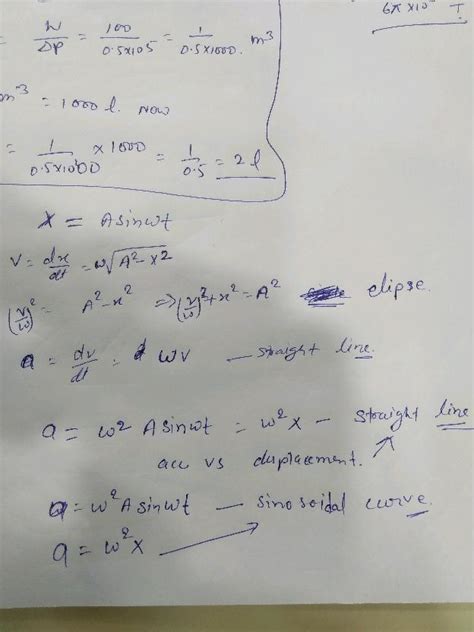 6π × 10 T
= W/ΔP = 100/0.5×10^5 = 1/0.5×1000. m^3
m^3 = 1000 l. Now
= 1/0.5×1000 × 1000 = 1/0.5 = 2 l
X = A sinωt
V = dx/dt = ω√A^2-x^2
(v/ω)^2 = A^2-x^2 ⇒ (v/ω)^2+x^2=A^2 elipse.
a = dv/dt = ωv — straight line.
a = ω^2 A sinωt = ω^2 x — straight line
acc vs displacement.
a = ω^2 A sinωt — sinosoidal curve.
a = ω^2 x